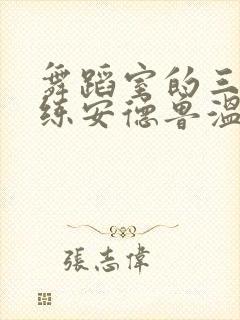 舞蹈室的三
练安德鲁温
張志偉